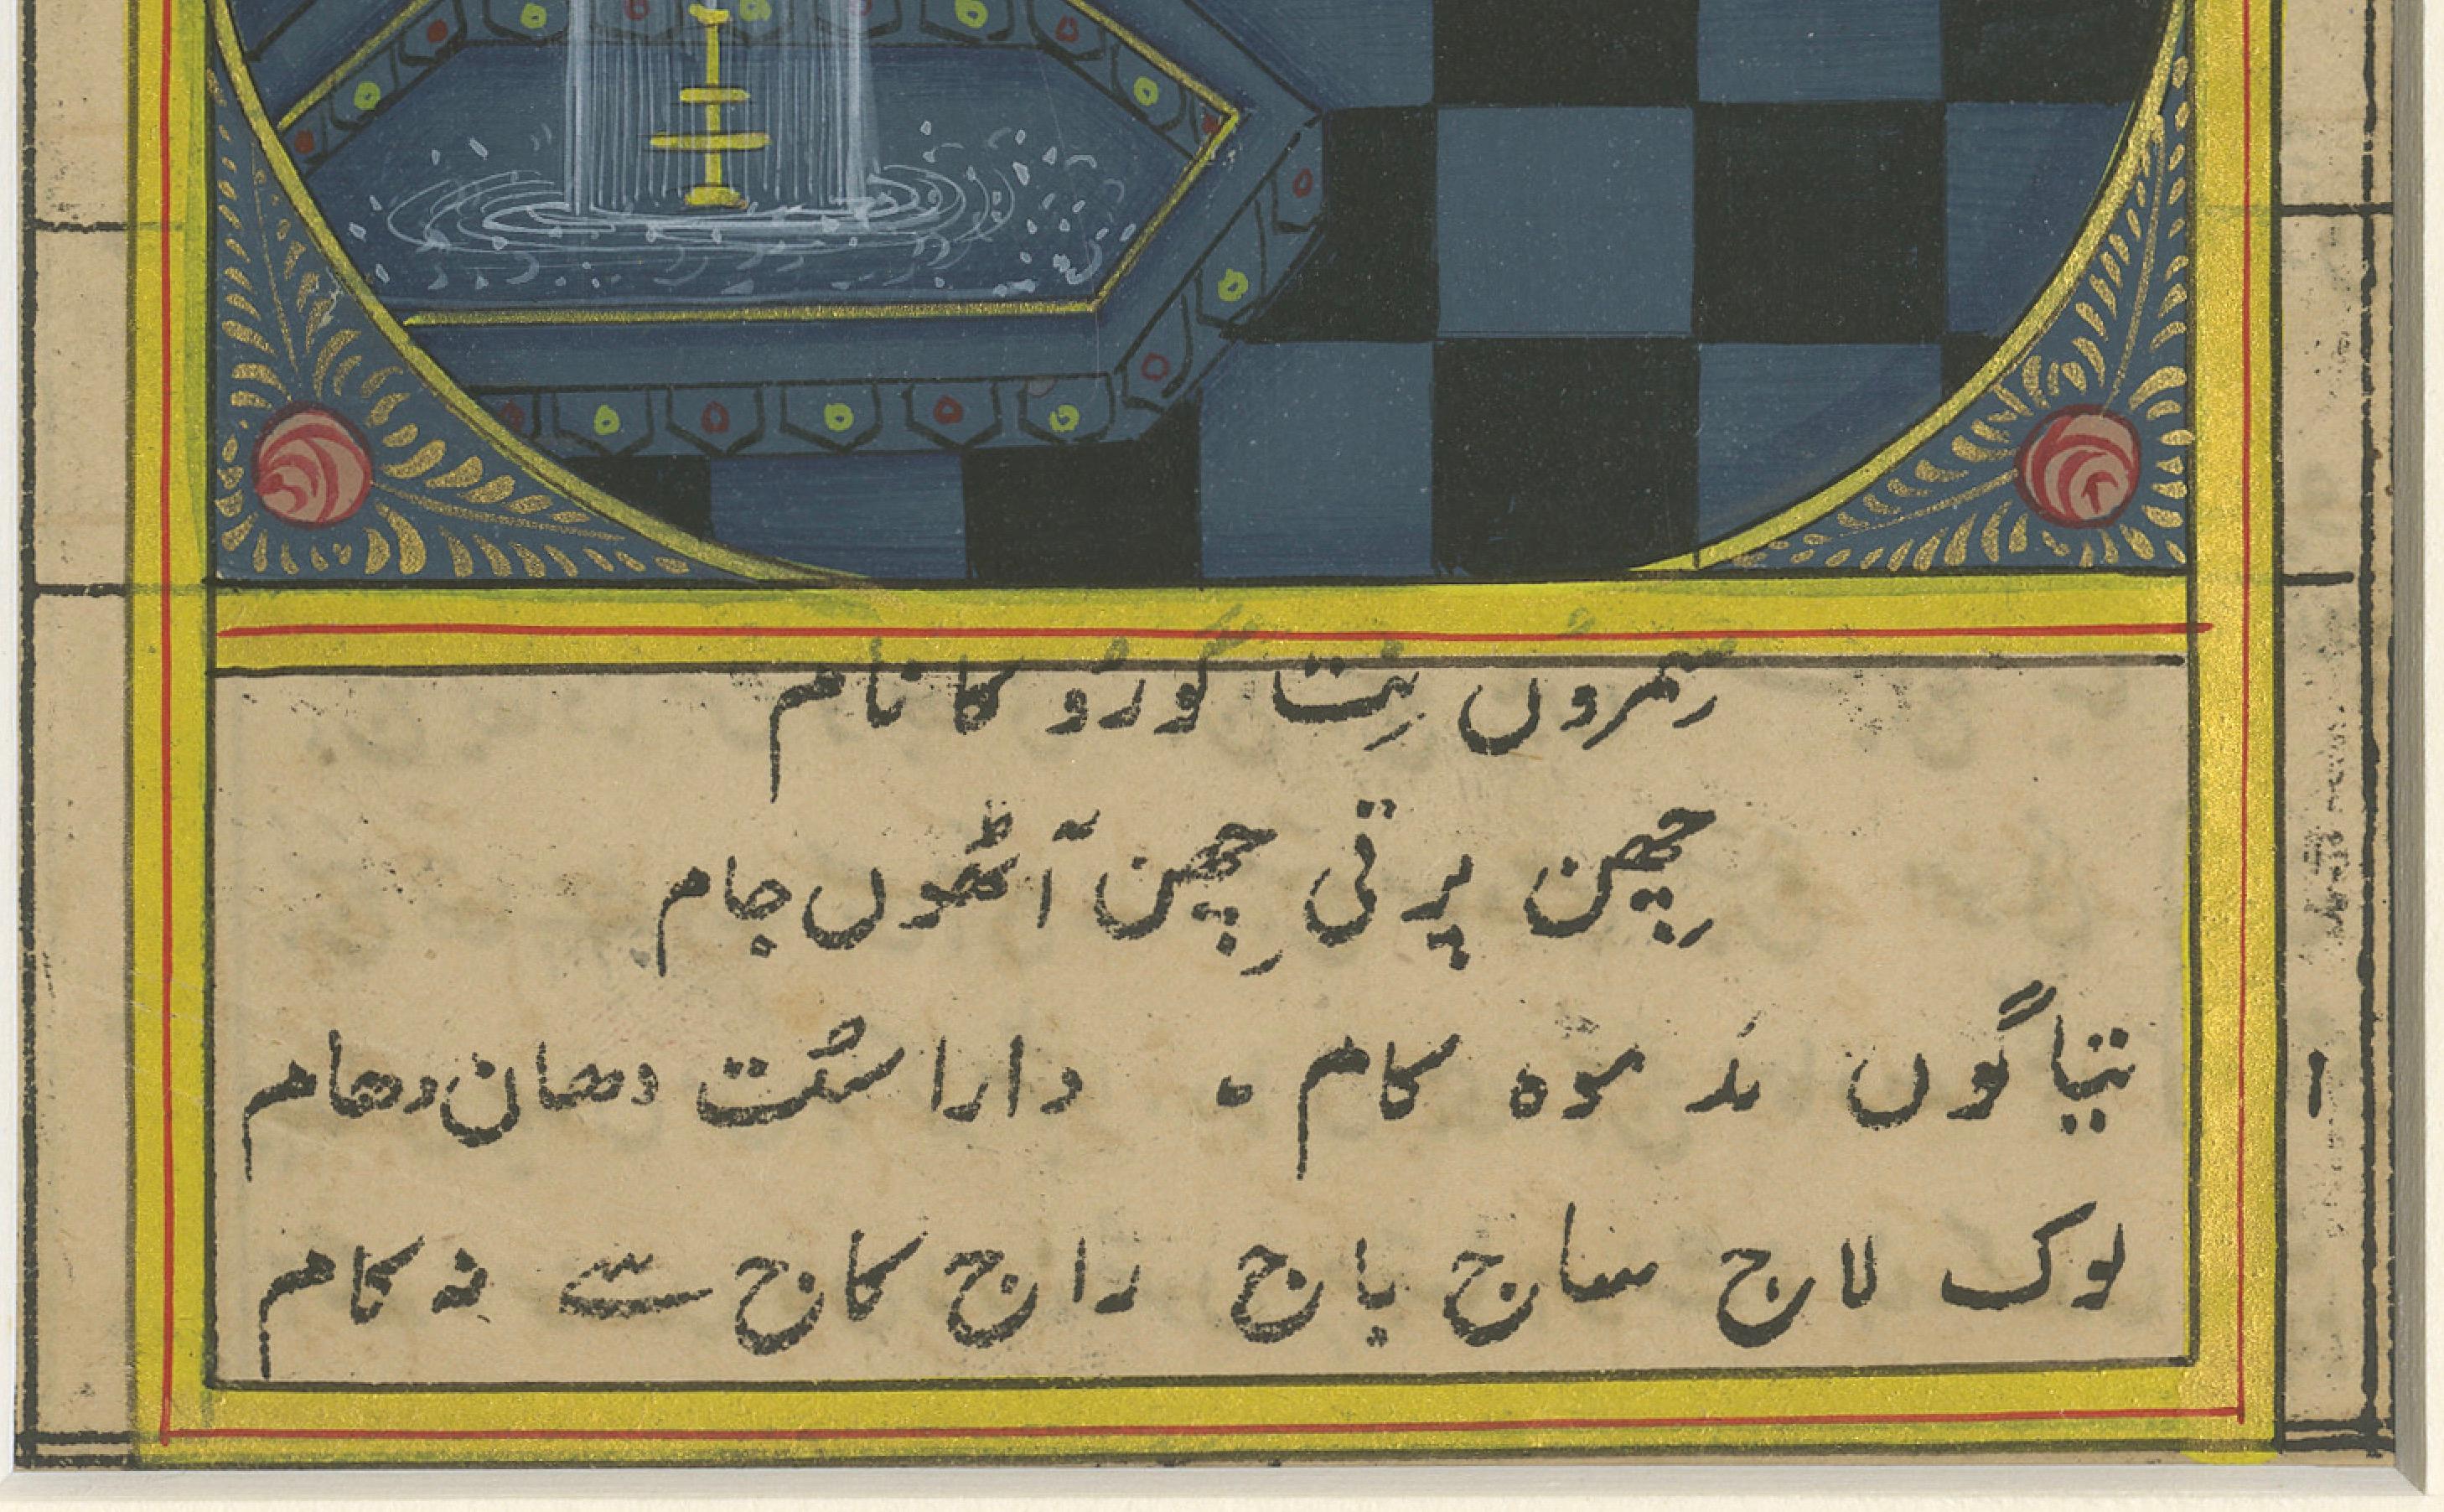 سِمروں نِت گورُو کا نام
چِھن پرتی چِھن آٹھوں جام
تیاگوں مَد موہ کام ۰ دارا سُت دھان دھام
۱
لوک لاج ساج باج راج کاج سے نہ کام